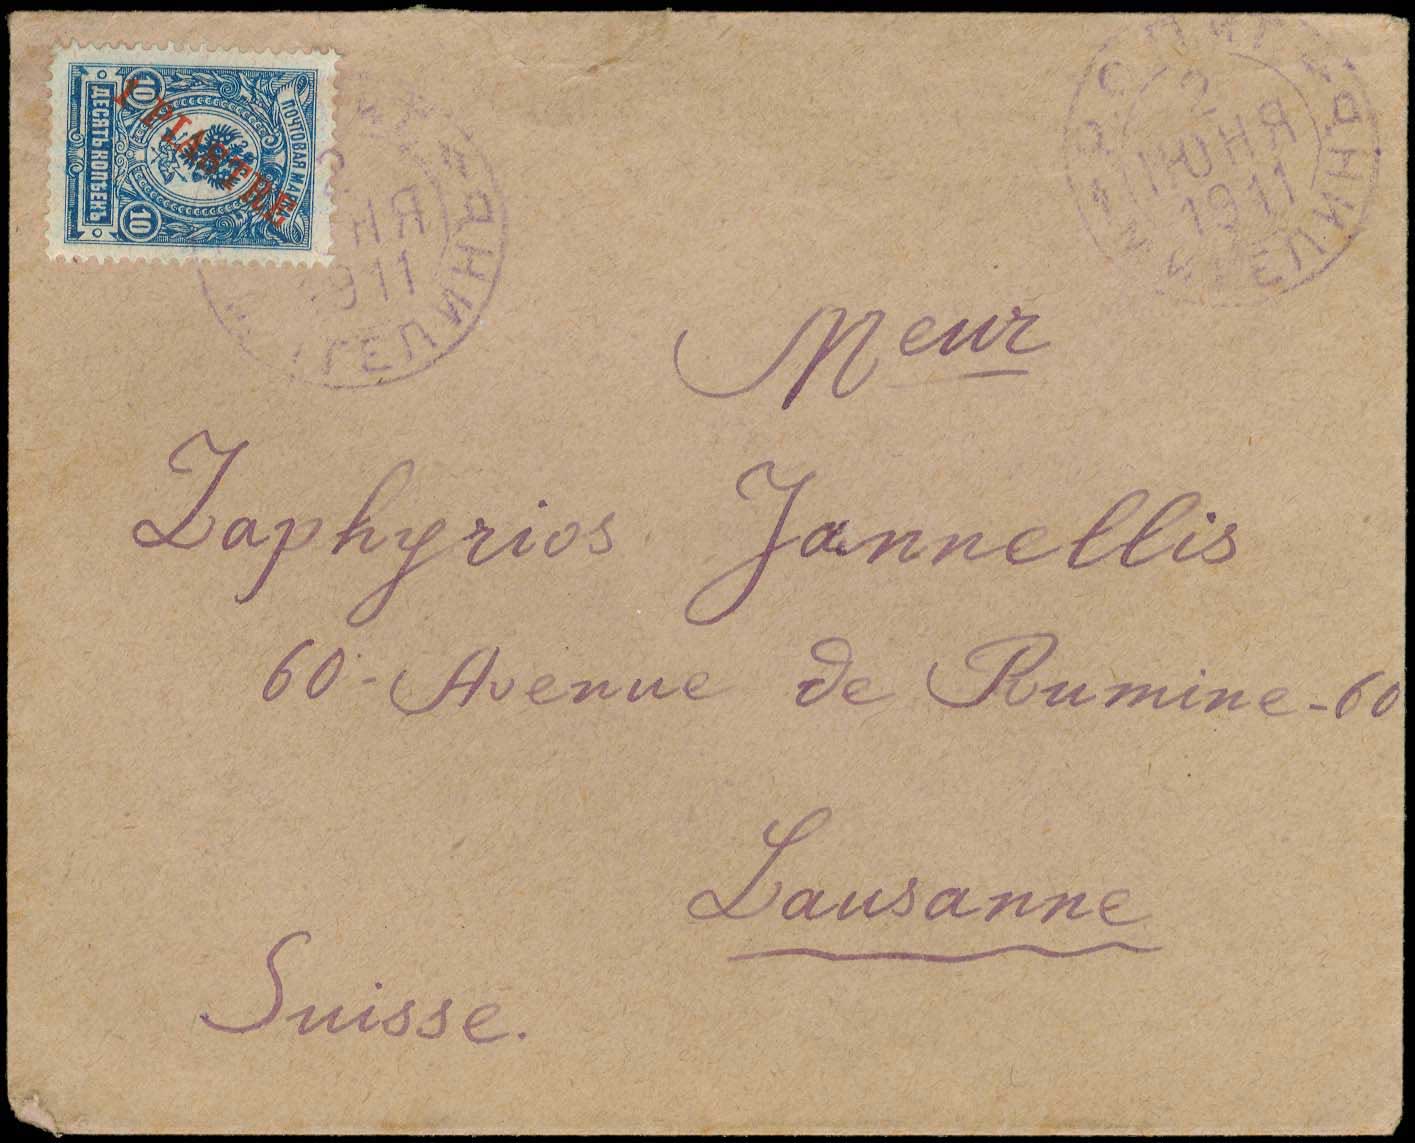 ПОЧТОВАЯ МАРКА
10
10
ДЕСЯТЬ КОПѢЕКЪ
1 PIASTRE
НЯ
1911
ИЮНЯ
1911
Meur
Zaphyrios Jannellis
60 - Avenue de Rumine - 60
Lausanne
Suisse.